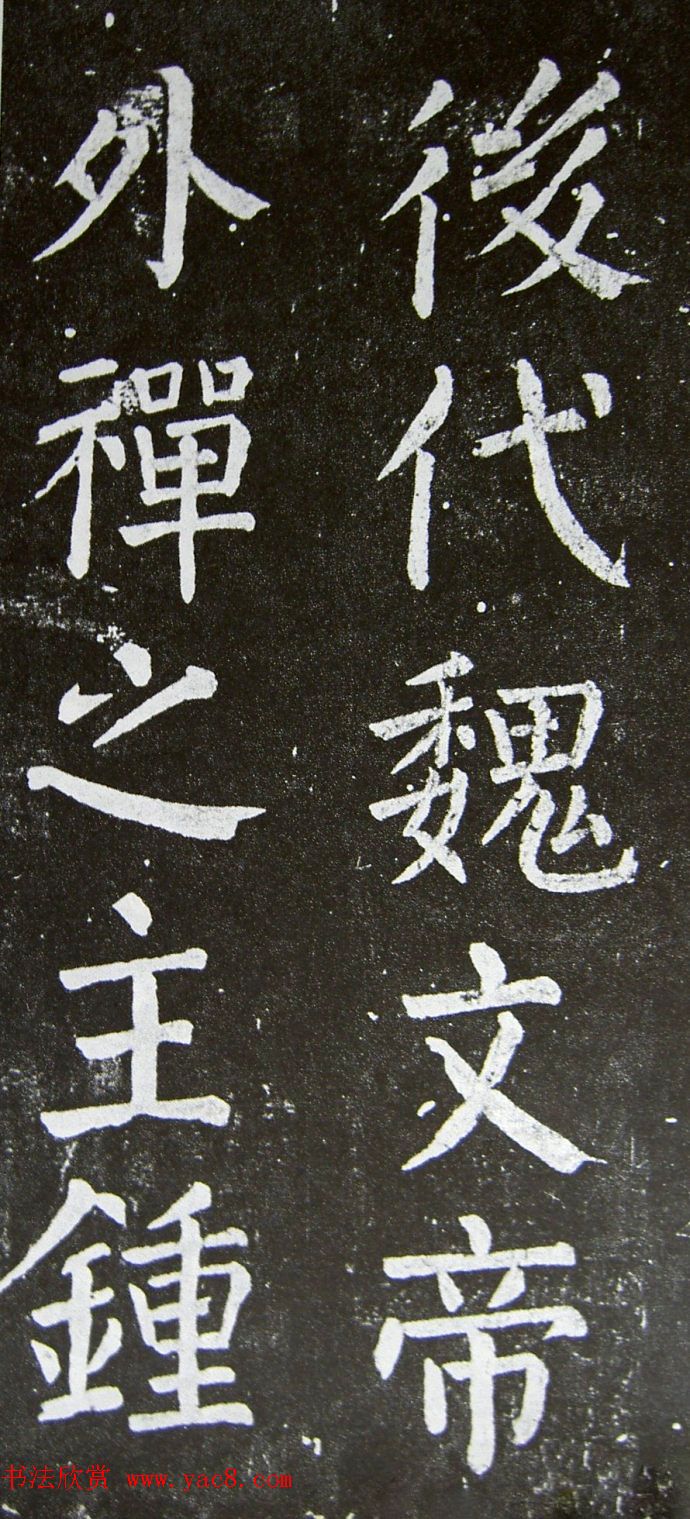 後代魏文帝
外禪之主鍾
书法欣赏 www.yac8.com